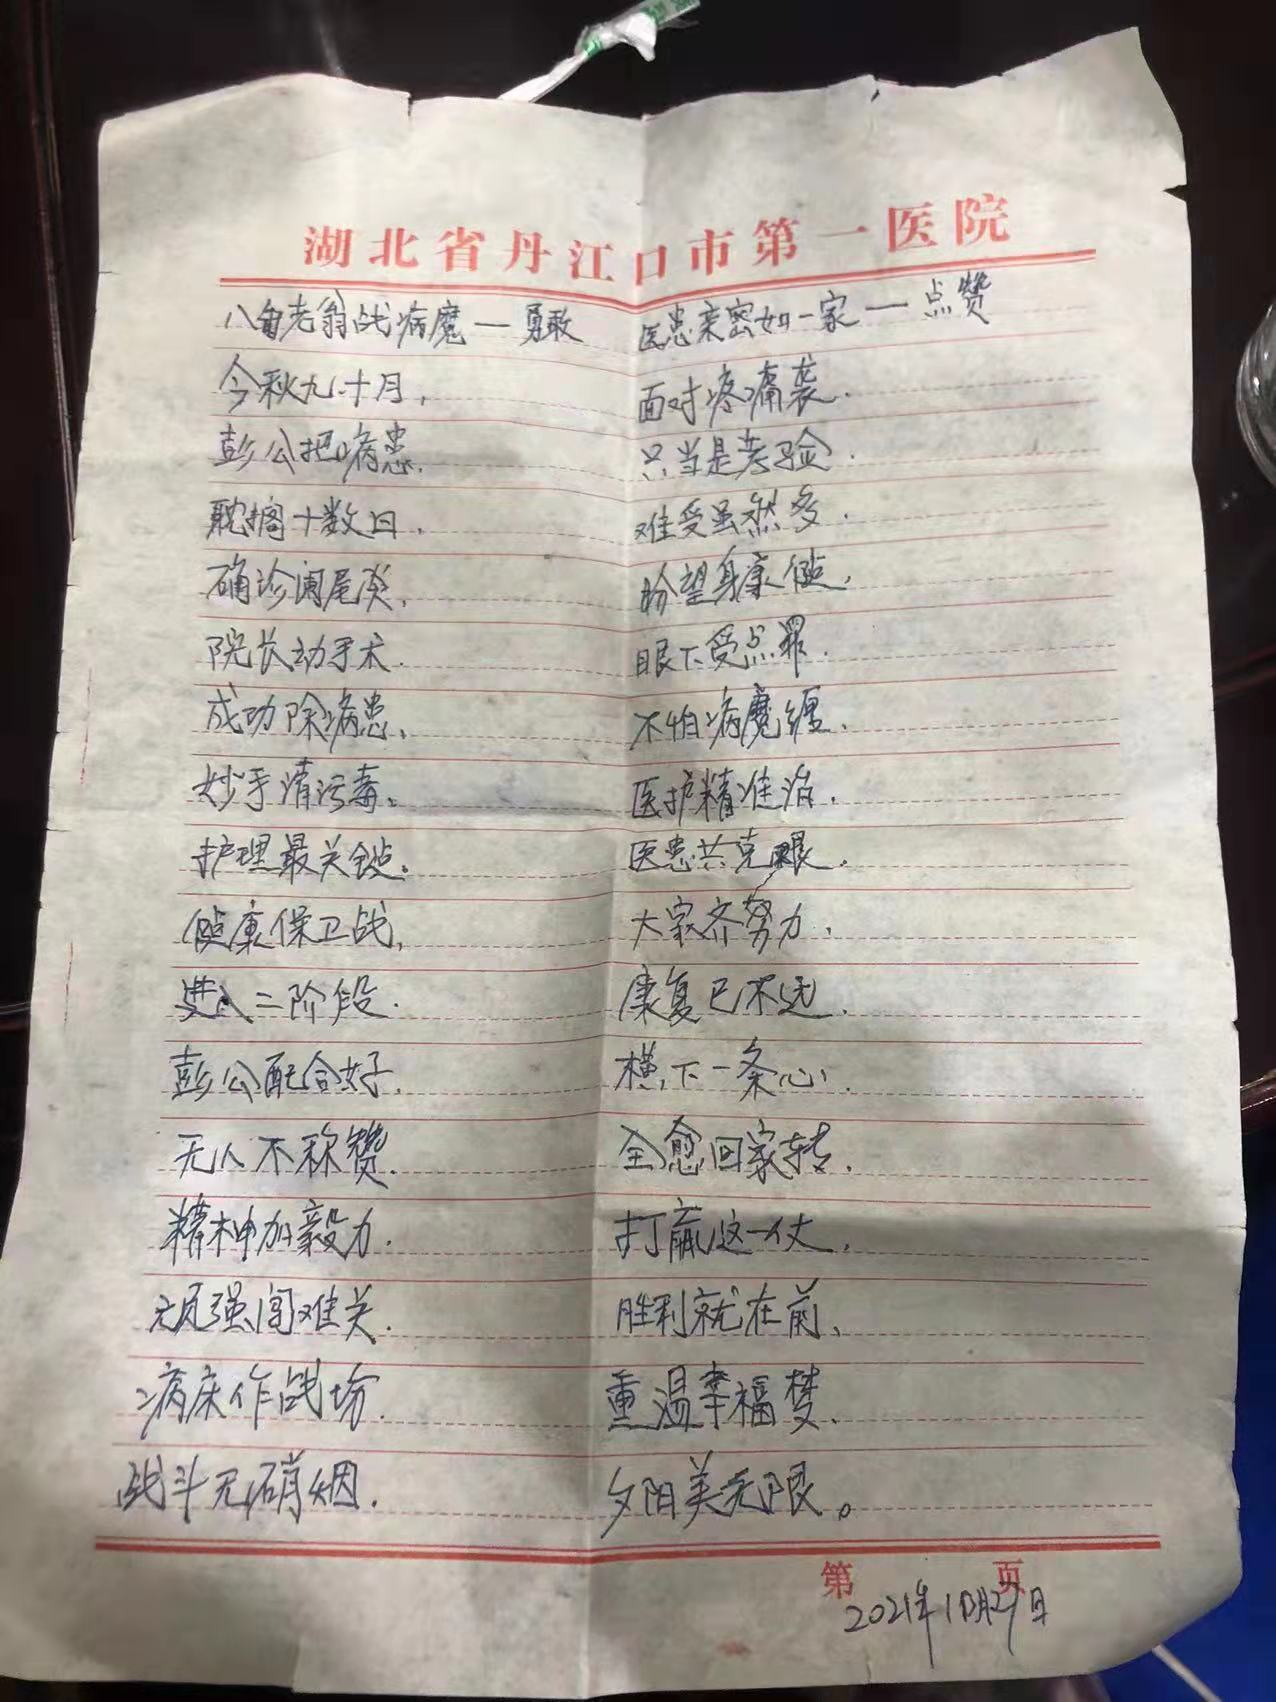 湖北省丹江口市第一医院
八旬老翁战病魔一勇敢
今秋九十月,
彭公把病患.
耽搁十数日.
确诊阑尾炎,
院长动手术.
成功除病患、
妙手清污毒。
护理最关键。
健康保卫战,
进入二阶段.
彭公配合好.
无人不称赞.
精神加毅力.
顽强闯难关.
病床作战场.
战斗无硝烟.
医患亲密如一家一点赞
面对疼痛袭.
只当是考验.
难受虽然多.
盼望身康健,
眼下受点罪.
不怕病魔缠.
医护精准治.
医患共克艰.
大家齐努力.
康复已不远.
横下一条心.
全愈回家转.
打赢这一仗.
胜利就在前、
重温幸福梦.
夕阳美无限。
第 页
2021年10月27日